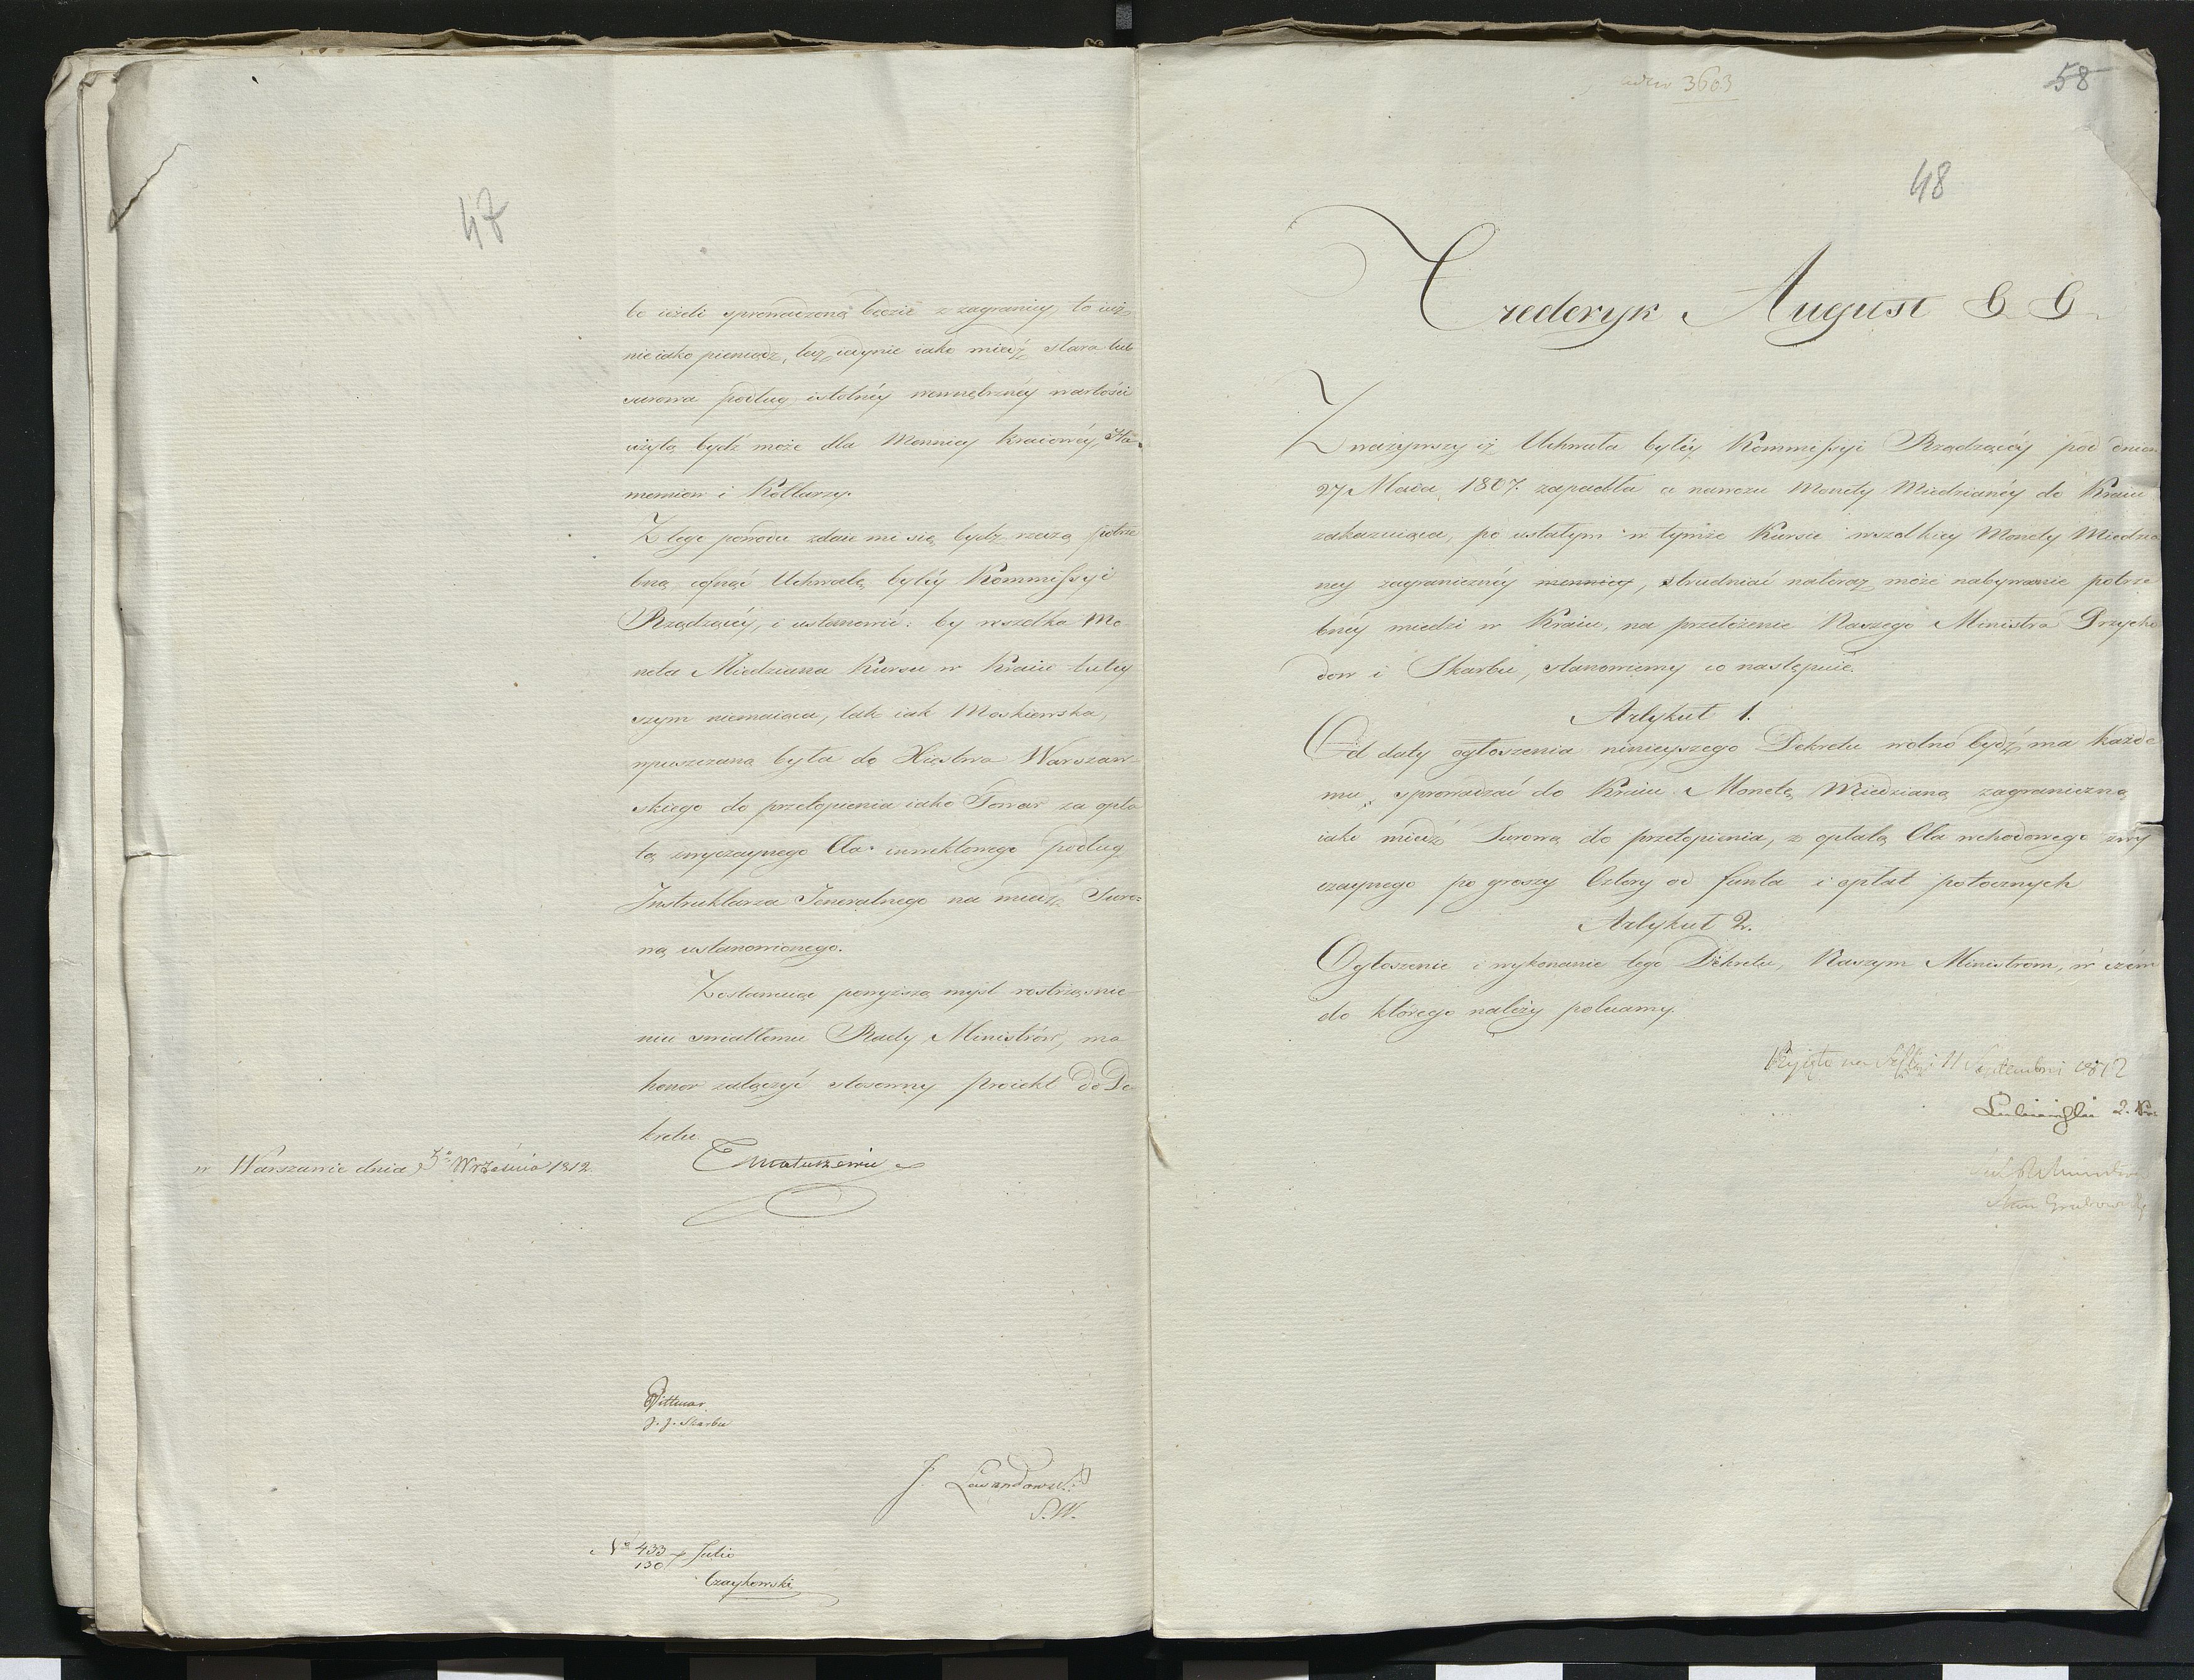 47
bo ieżeli sprowadzoną będzie z zagranicy, to iuż
nie iako pieniądz, lecz iedynie iako miedź stara lub
surowa podług istotnéy wewnętrznéy wartości
użytą bydź może dla Mennicy kraiowéy, Ha-
mernien i Kotlarzy.
Z tego powodu zdaie mi się bydz rzeczą potrze
bną cofnąć Uchwałę byłéy Kommissyi
Rządzącéy, i ustanowić: by wszelka Mo-
neta Miedziana Kursu w Kraiu tutey
szym niemaiąca, tak iak Moskiewska,
wpuszczaną była do Xięstwa Warszaw-
skiego do przetopienia iako Towar za opła
tą zwyczaynego Cła inwektowego podług
Instruktarza Jeneralnego na miedź Suro-
wą ustanowionego.
Zostawuiąc powyższą myśl rostrząśnie-
niu światłemu Rady Ministrów, ma
honor załączyć stosowny proiekt do De
kretu
w Warszawie dnia 3° Września 1812.
T Matuszewic
Dittmar
J. J. Skarbu
J. Lewandowski
S. W.
N° 433 Julio
130
Czaykowski
3603
58
48
Frederyk August &. &.
Zważywszy iż Uchwała byłéy Kommissyi Rządzącéy pod dniem
27 Maia 1807. zapadła a nawozu Monety Miedzianéy do Kraiu
zakazuiąca, po ustałym w tymże Kursie wszelkiey Monety Miedzia
ney zagranicznéy mennicy, utrudniać nateraz może nabywanie potrze
bnéy miedzi w Kraiu, na przełożenie Naszego Ministra Przycho
dów i Skarbu, stanowiemy co następuie.
Artykuł 1.
Od daty ogłoszenia ninieyszego Dekretu wolno bydź ma każde
mu, sprowadzać do Kraiu Monetę Miedzianą zagraniczną
iako miedź Surową do przetopienia, z opłatą Cła wchodowego zwy
czaynego po groszy Cztery od funta i opłat potocznych
Artykuł 2.
Ogłoszenie i wykonanie tego Dekretu, Naszym Ministrom, w czém
do którego należy polecamy.
Przyięto na Sessyi 11 Septembris 1812
Grabowski